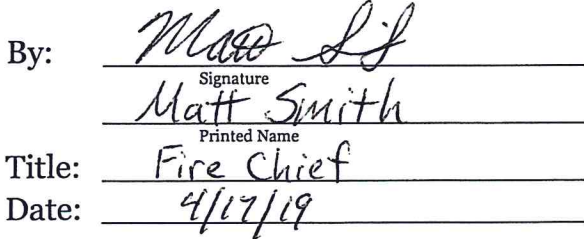 By: Matt
Signature
Matt Smith
Printed Name
Title: Fire Chief
Date: 4/17/19